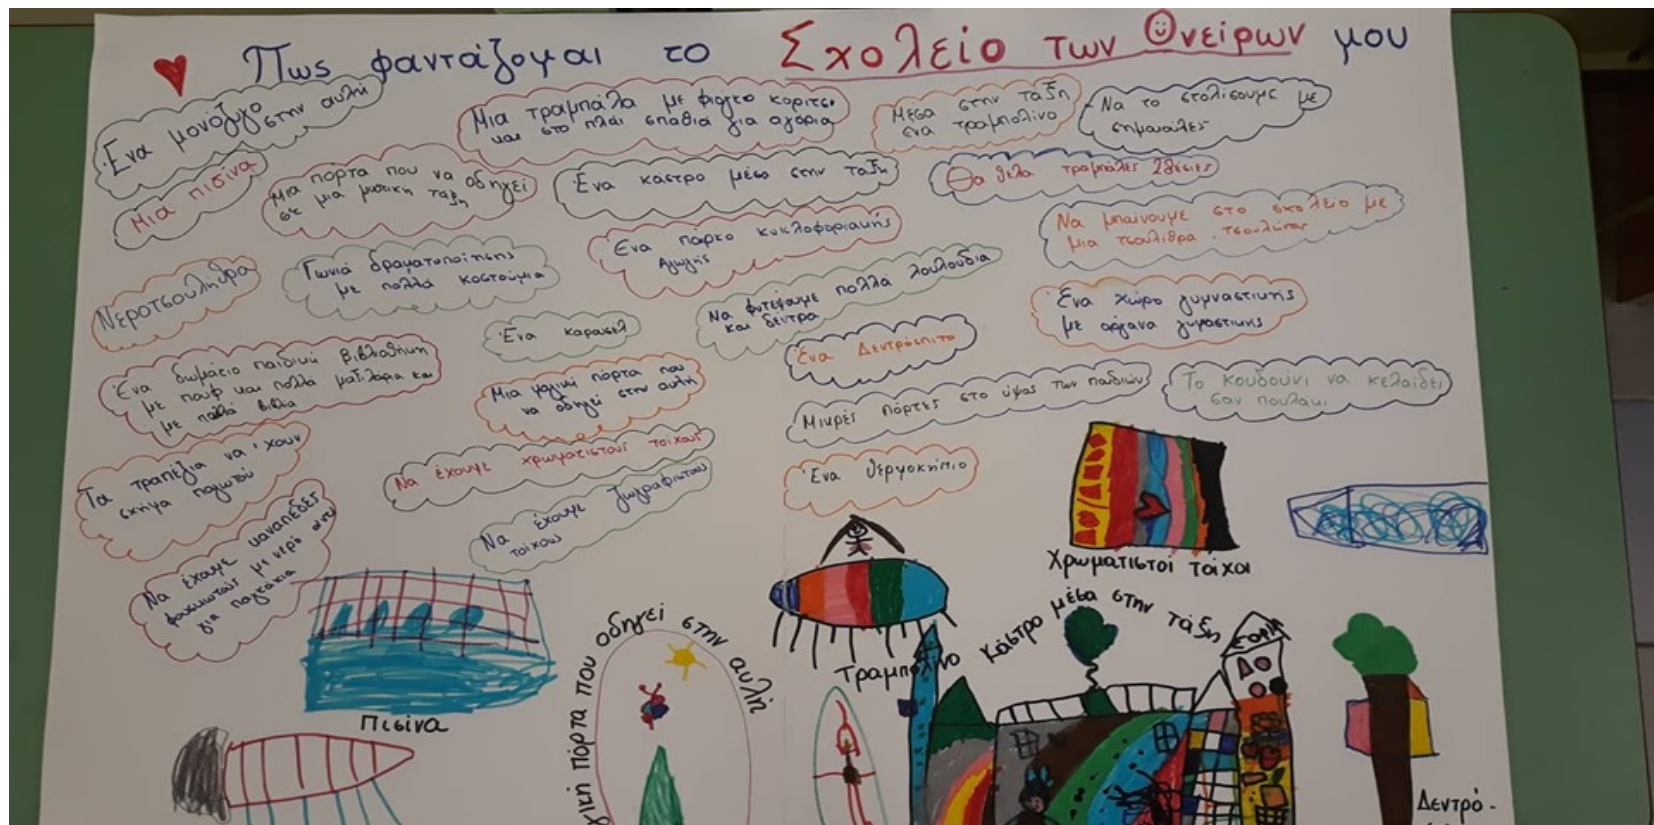 Πως φαντάζομαι το Σχολείο των Ονείρων μου
Ένα μονόζυγο
στην αυλή
Μια τραμπάλα με φιόγκο κορίτσι
και στο πλάι σπαθιά για αγόρια
Μέσα στην τάξη
ένα τραμπολίνο
Να το στολίσουμε με
σημαιούλες
Μια πισίνα
Μια πόρτα που να οδηγεί
σε μια μυστική τάξη
Ένα κάστρο μέσα στην τάξη
Θα θελα τραμπάλες 2θέσιες
Να μπαίνουμε στο σχολείο με
μια τσουλίθρα
Νεροτσουλήθρα
Γωνιά δραματοποίησης
με πολλά κοστούμια
Ένα πάρκο κυκλοφοριακής
Αγωγής
Να φυτέψουμε πολλά λουλούδια
και δέντρα
Ένα χώρο γυμναστικής
με όργανα γυμαστικης
Ένα καρασέλ
Ένα Δεντρόσπιτο
Ένα δωμάτιο παιδική βιβλιοθήκη
με πουφ και πολλά μαξιλάρια και
με πολλά βιβλία
Μια μαγική πόρτα που
να οδηγεί στην αυλή
Μικρές πόρτες στο ύψος των παιδιών
Το κουδούνι να κελαϊδεί
σαν πουλάκι
Τα τραπέζια να 'χουν
σχήμα παγωτού
Να έχουμε χρωματιστούς τοίχους
Ένα θερμοκήπιο
Να έχουμε ζωγραφιστους
τοίχους
Να έχουμε καναπέδες
φουσκωτούς με νερό αντί
για παγκάκια
Χρωματιστοί τοίχοι
Τραμπολίνο
Κάστρο μέσα στην τάξη
Πισίνα
πόρτα που οδηγεί στην αυλή
Δεντρό-